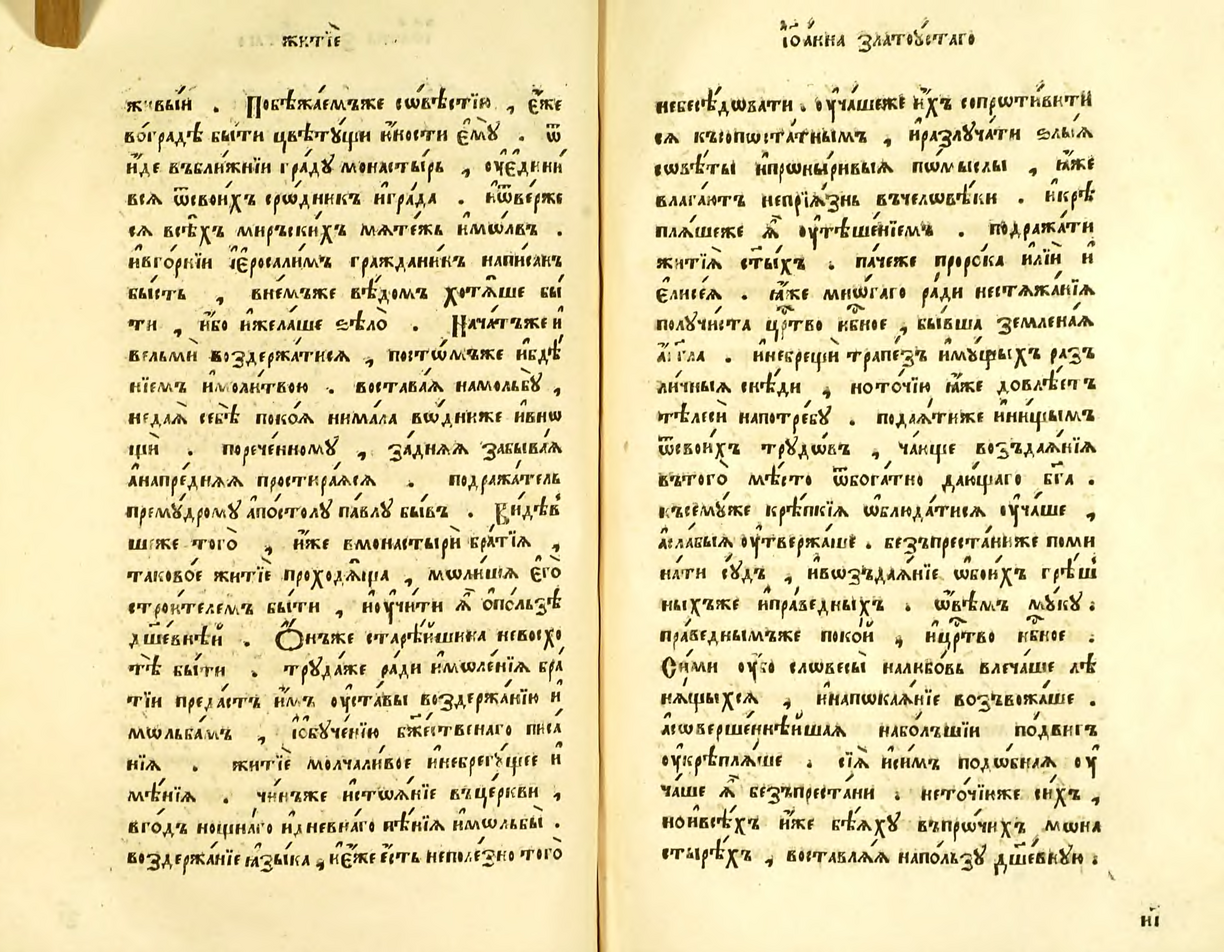 житїѐ
живы́й . Побѣжа́емъже со́вѣстїю , є҆́же
во́градѣ бы́ти цвѣ́тꙋщи ю҆́ности є҆мꙋ̀ . ѿ
и҆́де въбли́жнїи гра́дꙋ монасты́рь , оу҆є҆дини́
всѧ ѿсвои́хъ сро́дникъ и҆гра́да . и҆ѿве́рже
сѧ всѣ́хъ ми́рьскихъ мѧте́жь и҆мо́лвъ .
и҆вго́рнїи і҆єросали́мъ гра́жданинъ напи́санъ
бы́сть , вне́мъже вѣ́домъ хотѧ́ше бы́
ти , и҆́бо и҆жела́ше ѕѣлѡ̀ . Нача́тъже и҆
вельмѝ воздержа́тисѧ , посто́мъже и҆бдѣ́
нїемъ и҆моли́твою . востава́ѧ намольбꙋ̀ ,
неда́ѧ себѣ̀ поко́ѧ нима́ла во́дниже и҆вно
щѝ . порече́нномꙋ , за́днѧѧ забыва́ѧ
а҆напре́днѧѧ простира́ѧсѧ . подража́тель
премꙋ́дромꙋ а҆по́столꙋ па́влꙋ бы́въ . Ви́дѣв
шеже того̀ , и҆́же вмонастырѝ бра́тїѧ ,
таково́е житїѐ проходѧ́ща , моли́шѧ є҆го̀
строи́телемъ бы́ти , и҆оу҆чи́ти ѧ҆̀ ѻ҆по́льзѣ
дш҃е́внѣй . Ѻ҆́нъже старѣ́йшинa невосхо
тѣ̀ бы́ти . трꙋда́же ра́ди и҆моле́нїѧ бра́
тїи преда́стъ и҆̀мъ оу҆ста́вы воздержа́нїю и҆
мольба́мъ , і҆ѻ҆бꙋче́нїю бж҃е́ственаго писа́
нїѧ . житїѐ молчали́вое и҆небрегꙋ́щее и҆
мѣ́нїѧ . чи́нъже и҆стоѧ́нїе въце́ркви ,
вго́дъ нощна́го и҆дневна́го пѣ́нїѧ и҆мольбы̀ .
воздержа́нїе ꙗ҆зы́ка , и҆є҆́же є҆́сть неполе́зно того̀
і҆ѻа́нна златоꙋ́стаго
небесѣ́довати . оу҆ча́шеже и҆́хъ сопроти́витй
сѧ късопоста́тнымъ , и҆разлꙋча́ти ѕлы́ѧ
совѣ́ты и҆проны́ривыѧ по́мыслы , ꙗ҆́же
влага́ютъ непрїѧ́знь въчеловѣ́ки . и҆крѣ
плѧ́шеже ѧ҆̀ оу҆тѣше́нїемъ . подража́ти
житїѧ̀ ст҃ы́хъ . па́чеже проро́ка и҆лїѝ и҆
є҆лисе́ѧ . ꙗ҆́же мно́гаго ра́ди нестѧжа́нїѧ
полꙋчи́ста црⷭ҇тво нбⷭ҇ное , бы́вша земленаѧ
а҆́гг҃ла . и҆небрещѝ трапе́зъ и҆мꙋ́щыхъ раз
ли́чныѧ снѣ́ди , но́точїю ꙗ҆́же довлѣ́етъ
тѣлесѝ напотре́бꙋ . подаѧ́тиже и҆ни́щымъ
ѿсвои́хъ трꙋдо́въ , ча́юще возъдаѧ́нїѧ
вътого̀ мѣ́сто ѿбога́тно даю́щаго бг҃а .
късемꙋ́же крѣ́пкїѧ ѡ҆блюда́тисѧ оу҆ча́ше ,
а҆сла́быѧ оу҆твержа́ше . безъпреста́ниже поми
на́ти сꙋ́дъ , и҆возъдаѧ́нїе ѻ҆бои́хъ грѣ́ш
ныхъже и҆пра́ведныхъ . ѻ҆вѣ́мъ мꙋ́кꙋ ;
пра́веднымъже поко́й , и҆црⷭ҇тво нбⷭ҇ное ;
Си́ми оу҆́бо словесы̀ налюбо́вь влеча́ше лѣ
нѧ́щыхсѧ , и҆напокаѧ́нїе возъвожа́ше .
а҆соверше́ннѣйшаѧ набо́лъшїи по́двигъ
оу҆крѣплѧ́ше . сїѧ̀ и҆си́мъ подо́бнаѧ оу҆
ча́ше ѧ҆̀ безъпреста́ни ; нето́чїюже си́хъ ,
нои҆всѣ́хъ и҆́же бѣ́ѧхꙋ въпро́чихъ мона
стырѣ́хъ , воставлѧ́ѧ напо́льзꙋ дш҃е́внꙋю ;
ні